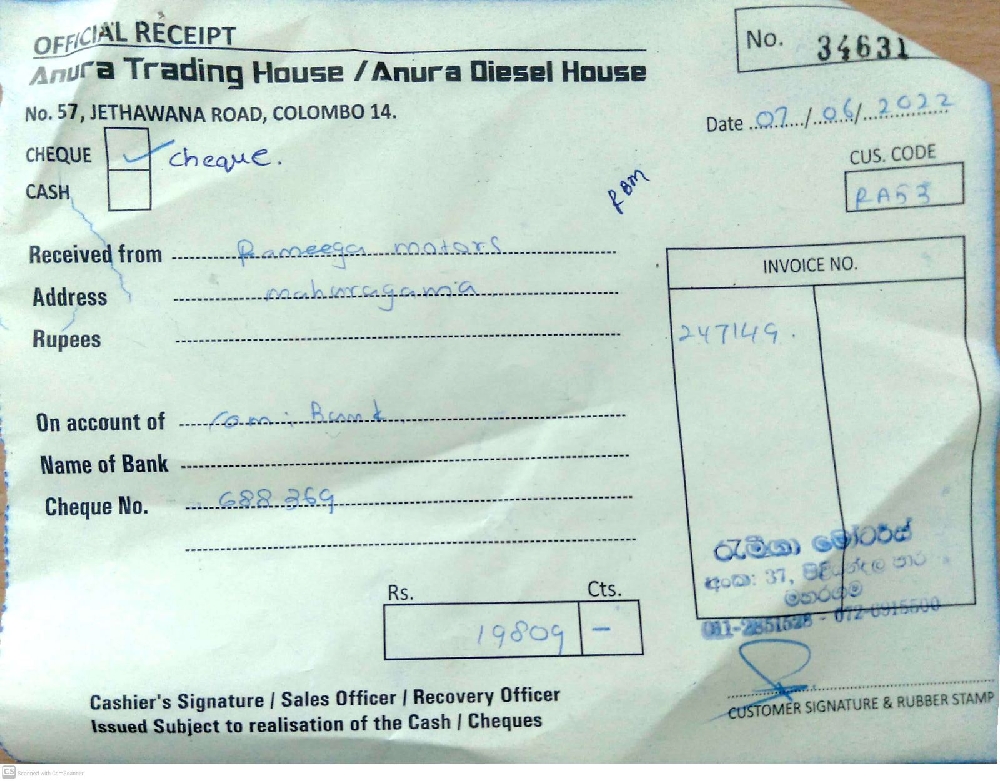 OFFICIAL RECEIPT
No. 34631
Anura Trading House / Anura Diesel House
No. 57, JETHAWANA ROAD, COLOMBO 14.
Date 07/06/2022
CHEQUE ✓ cheque.
CUS. CODE
CASH
RA53
Received from Rameega motors
INVOICE NO.
Address maharagama
Rupees
247149.
On account of com: Bank
Name of Bank
Cheque No. 688369
රැමීගා මෝටර්ස්
අංක: 37, පිළියන්දල පාර
මහරගම
Rs. Cts.
19809 –
Cashier's Signature / Sales Officer / Recovery Officer
CUSTOMER SIGNATURE & RUBBER STAMP
Issued Subject to realisation of the Cash / Cheques